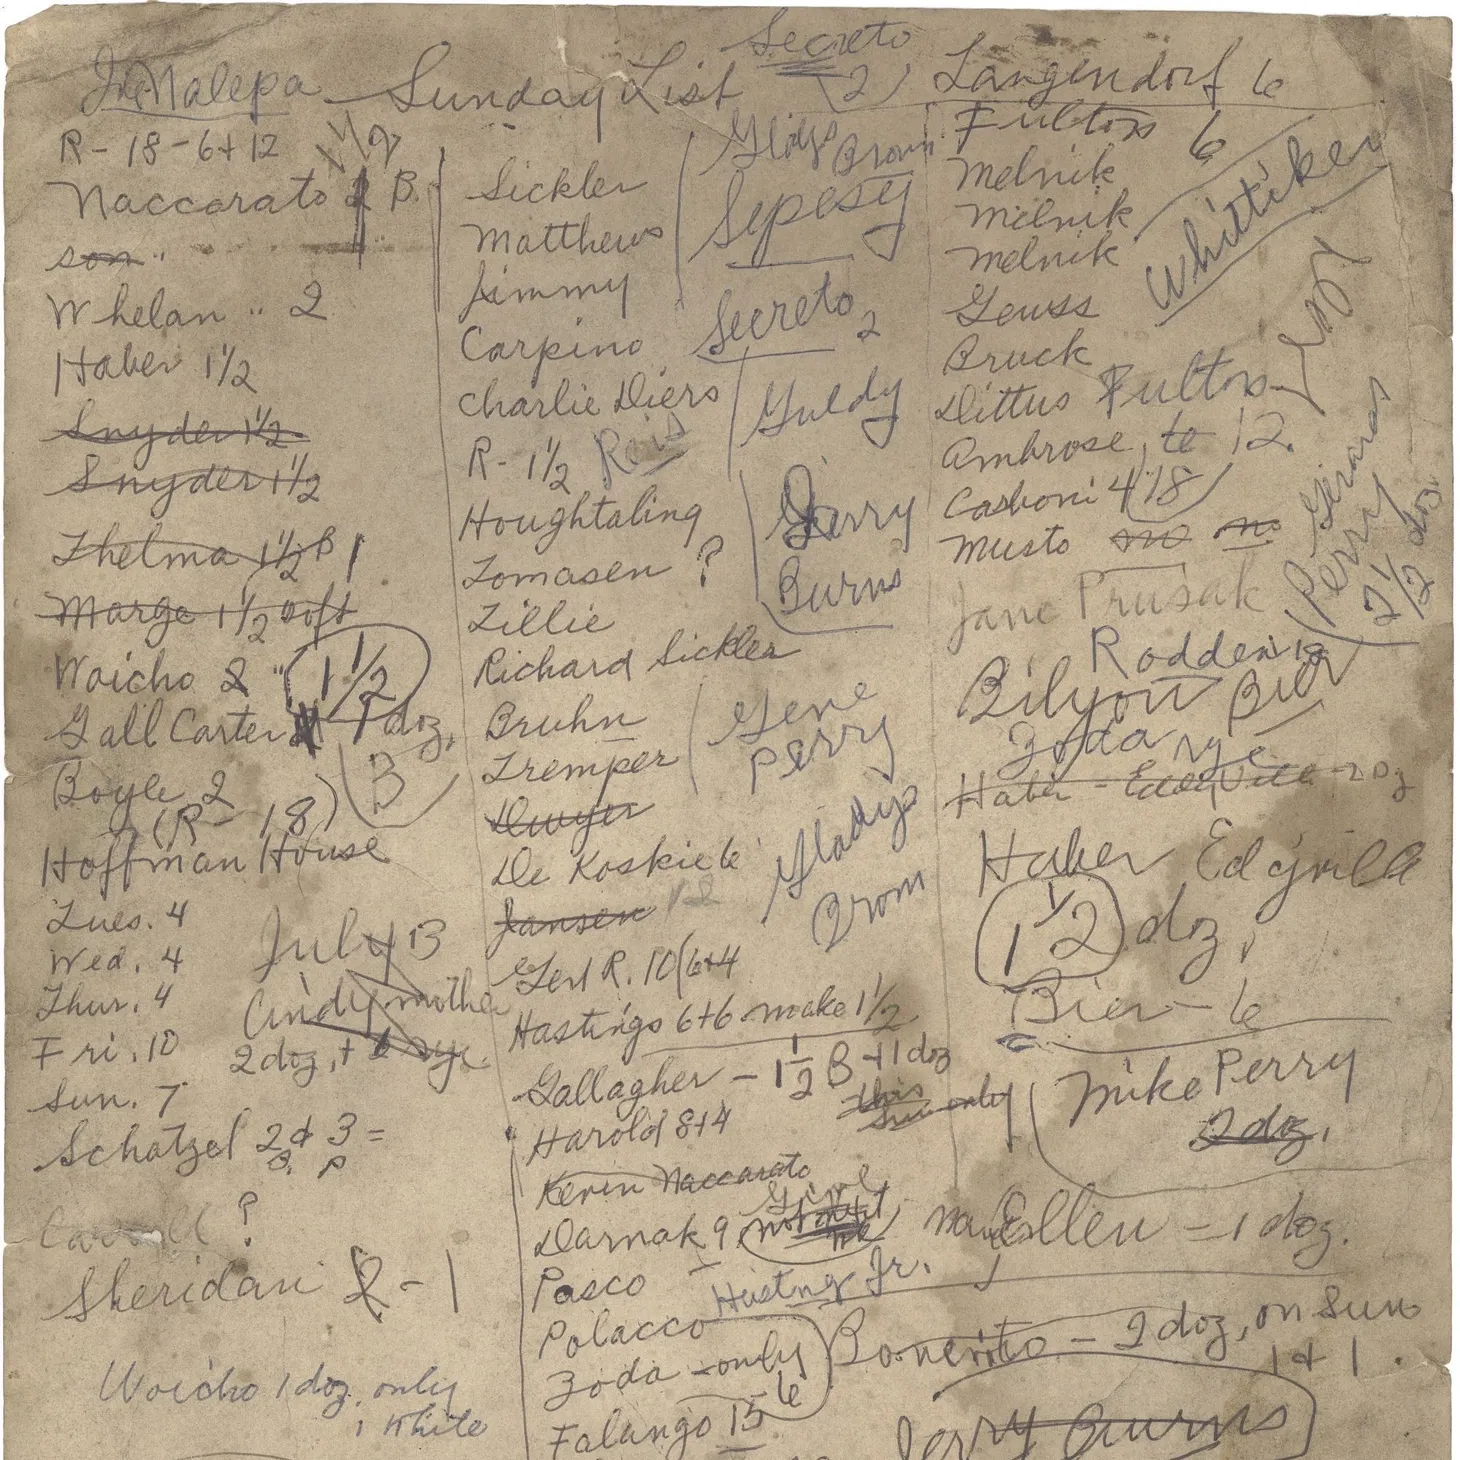 Jr. Nalepa Sunday List
R - 18 - 6 + 12
1 1/2
Naccarato 2 B.
son "
Whelan " 2
Haber 1 1/2
Snyder 1 1/2
Snyder 1 1/2
Thelma 1 1/2 B 1
Marge 1 1/2 soft
Woicho 2 " 1 1/2
Gall Carter 1 doz.
Boyle 2
3
(R - 18)
Hoffman House
Tues. 4
Wed. 4
Thur. 4
Fri. 10
Sun. 7
July 13
Cindy mother
2 doz, + 6 rye
Schatzel 2 & 3 =
B. P
Carroll ?
Sheridan 2 - 1
Woicho 1 doz. only
1 White
Sickler
Matthews
Jimmy
Carpino
Charlie Diers
R - 1 1/2 Reis
Houghtaling
Tomasen ?
Lillie
Richard Sickler
Bruhn
Tremper
Dwyer
De Koskie 6
Jansen 12
Gert R. 10 (6+4
Hastings 6+6 make 1 1/2
Gallagher - 1 1/2 B + 1 doz
this
Sun only
Harold 8+4
Kevin Naccarato
Darnak 9
Pasco
Hasting Jr.
Polacco
Zoda - only
6
Falango 15
Secreto
2
Gladys Brown
Sepesy
Secreto 2
Guldy
Gerry
Burns
Gene
Perry
Gladys
Brown
Langendorf 6
Fultos 6
Melnik
Melnik
Melnik
Whittiker
Geuss
Bruck
Dittus Fultos
Ambrose, te 12.
Casboni 4 18
Musto no no
Jane Prusak
Gerard
Perry
2 1/2 doz.
Rodden 12
Bilyou Bier
Zoda rye
Haber - Eddyville - 2 Dz
Haber Eddyville
1 1/2 doz,
Bier - 6
Mike Perry
2 doz.
Mary Ellen = 1 doz.
Bonerito - 2 doz, on Sun
1 & 1.
Jerry Burns